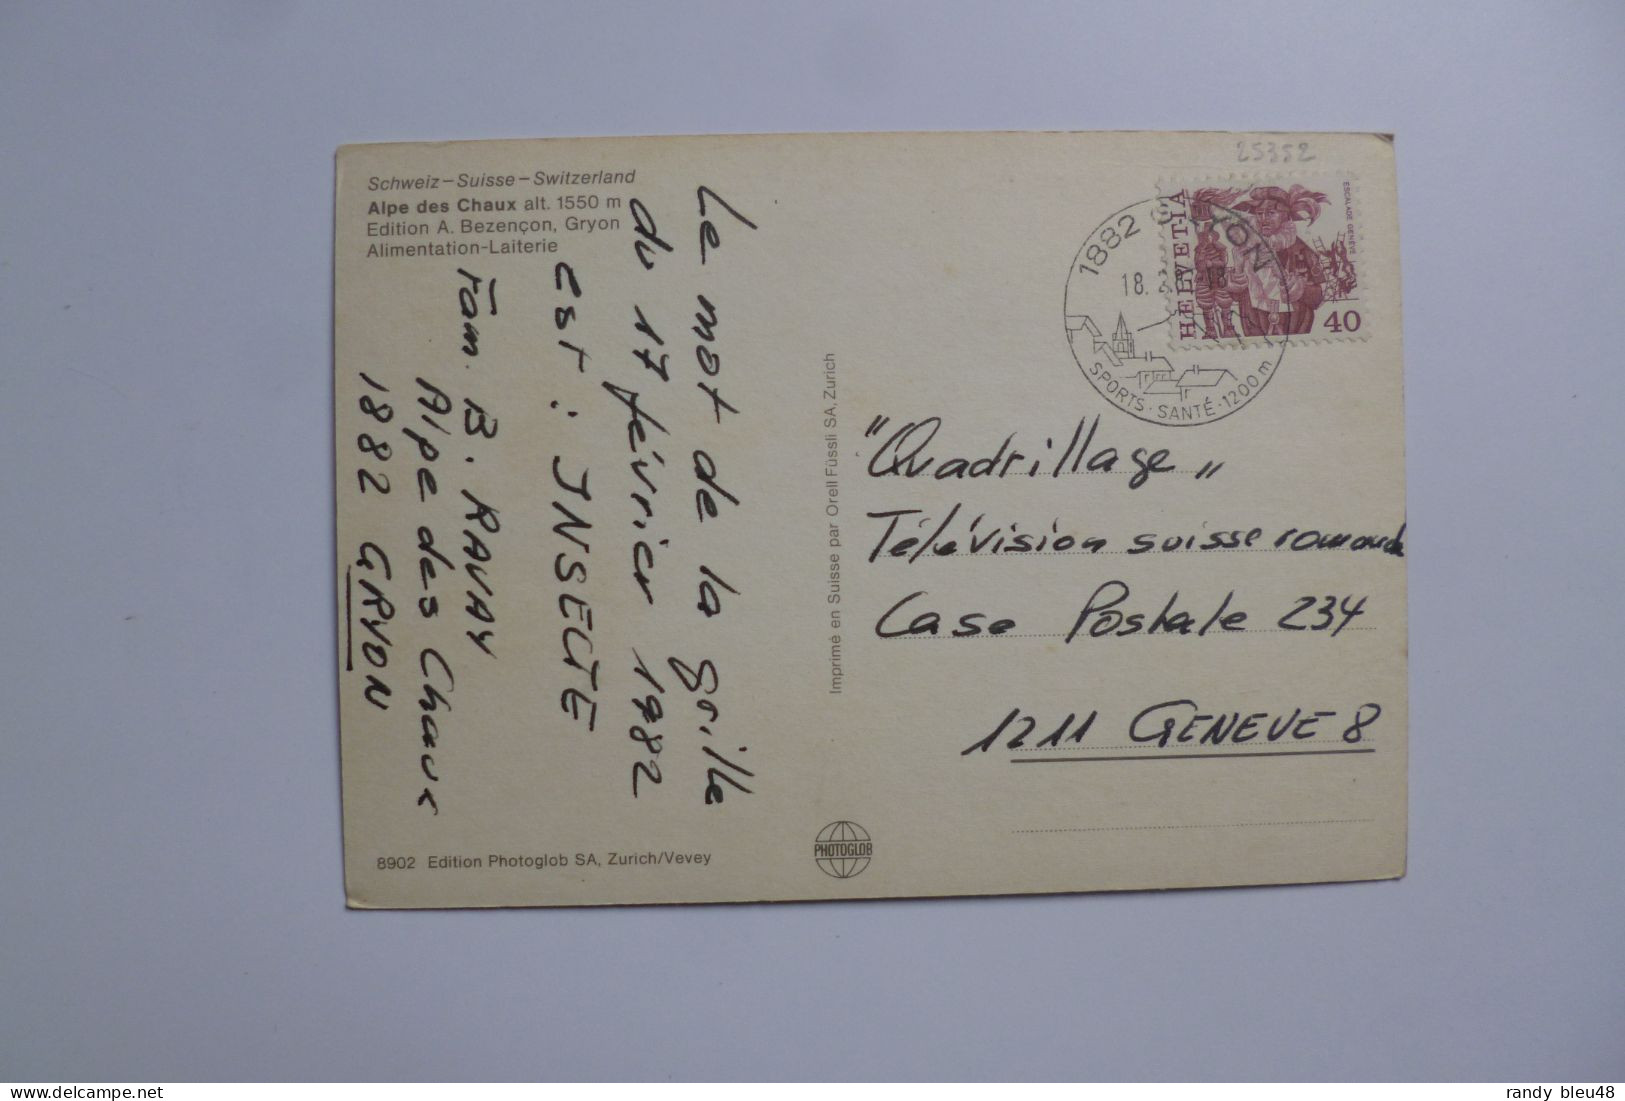 Schweiz – Suisse – Switzerland
Alpe des Chaux alt. 1550 m
Edition A. Bezençon, Gryon
Alimentation-Laiterie
Le mot de la grille
du 17 février 1982
est : INSECTE
Fam. B. RAVAY
Alpe des Chaux
1882 GRYON
8902 Edition Photoglob SA, Zurich/Vevey
Imprimé en Suisse par Orell Füssli SA, Zurich
PHOTOGLOB
25352
HELVETIA
ESCALADE GENÈVE
40
1882 GRYON
18.
18
SPORTS · SANTÉ · 1200 m
"Quadrillage"
Télévision suisse romande
Case Postale 234
1211 GENEVE 8
randy bleu48